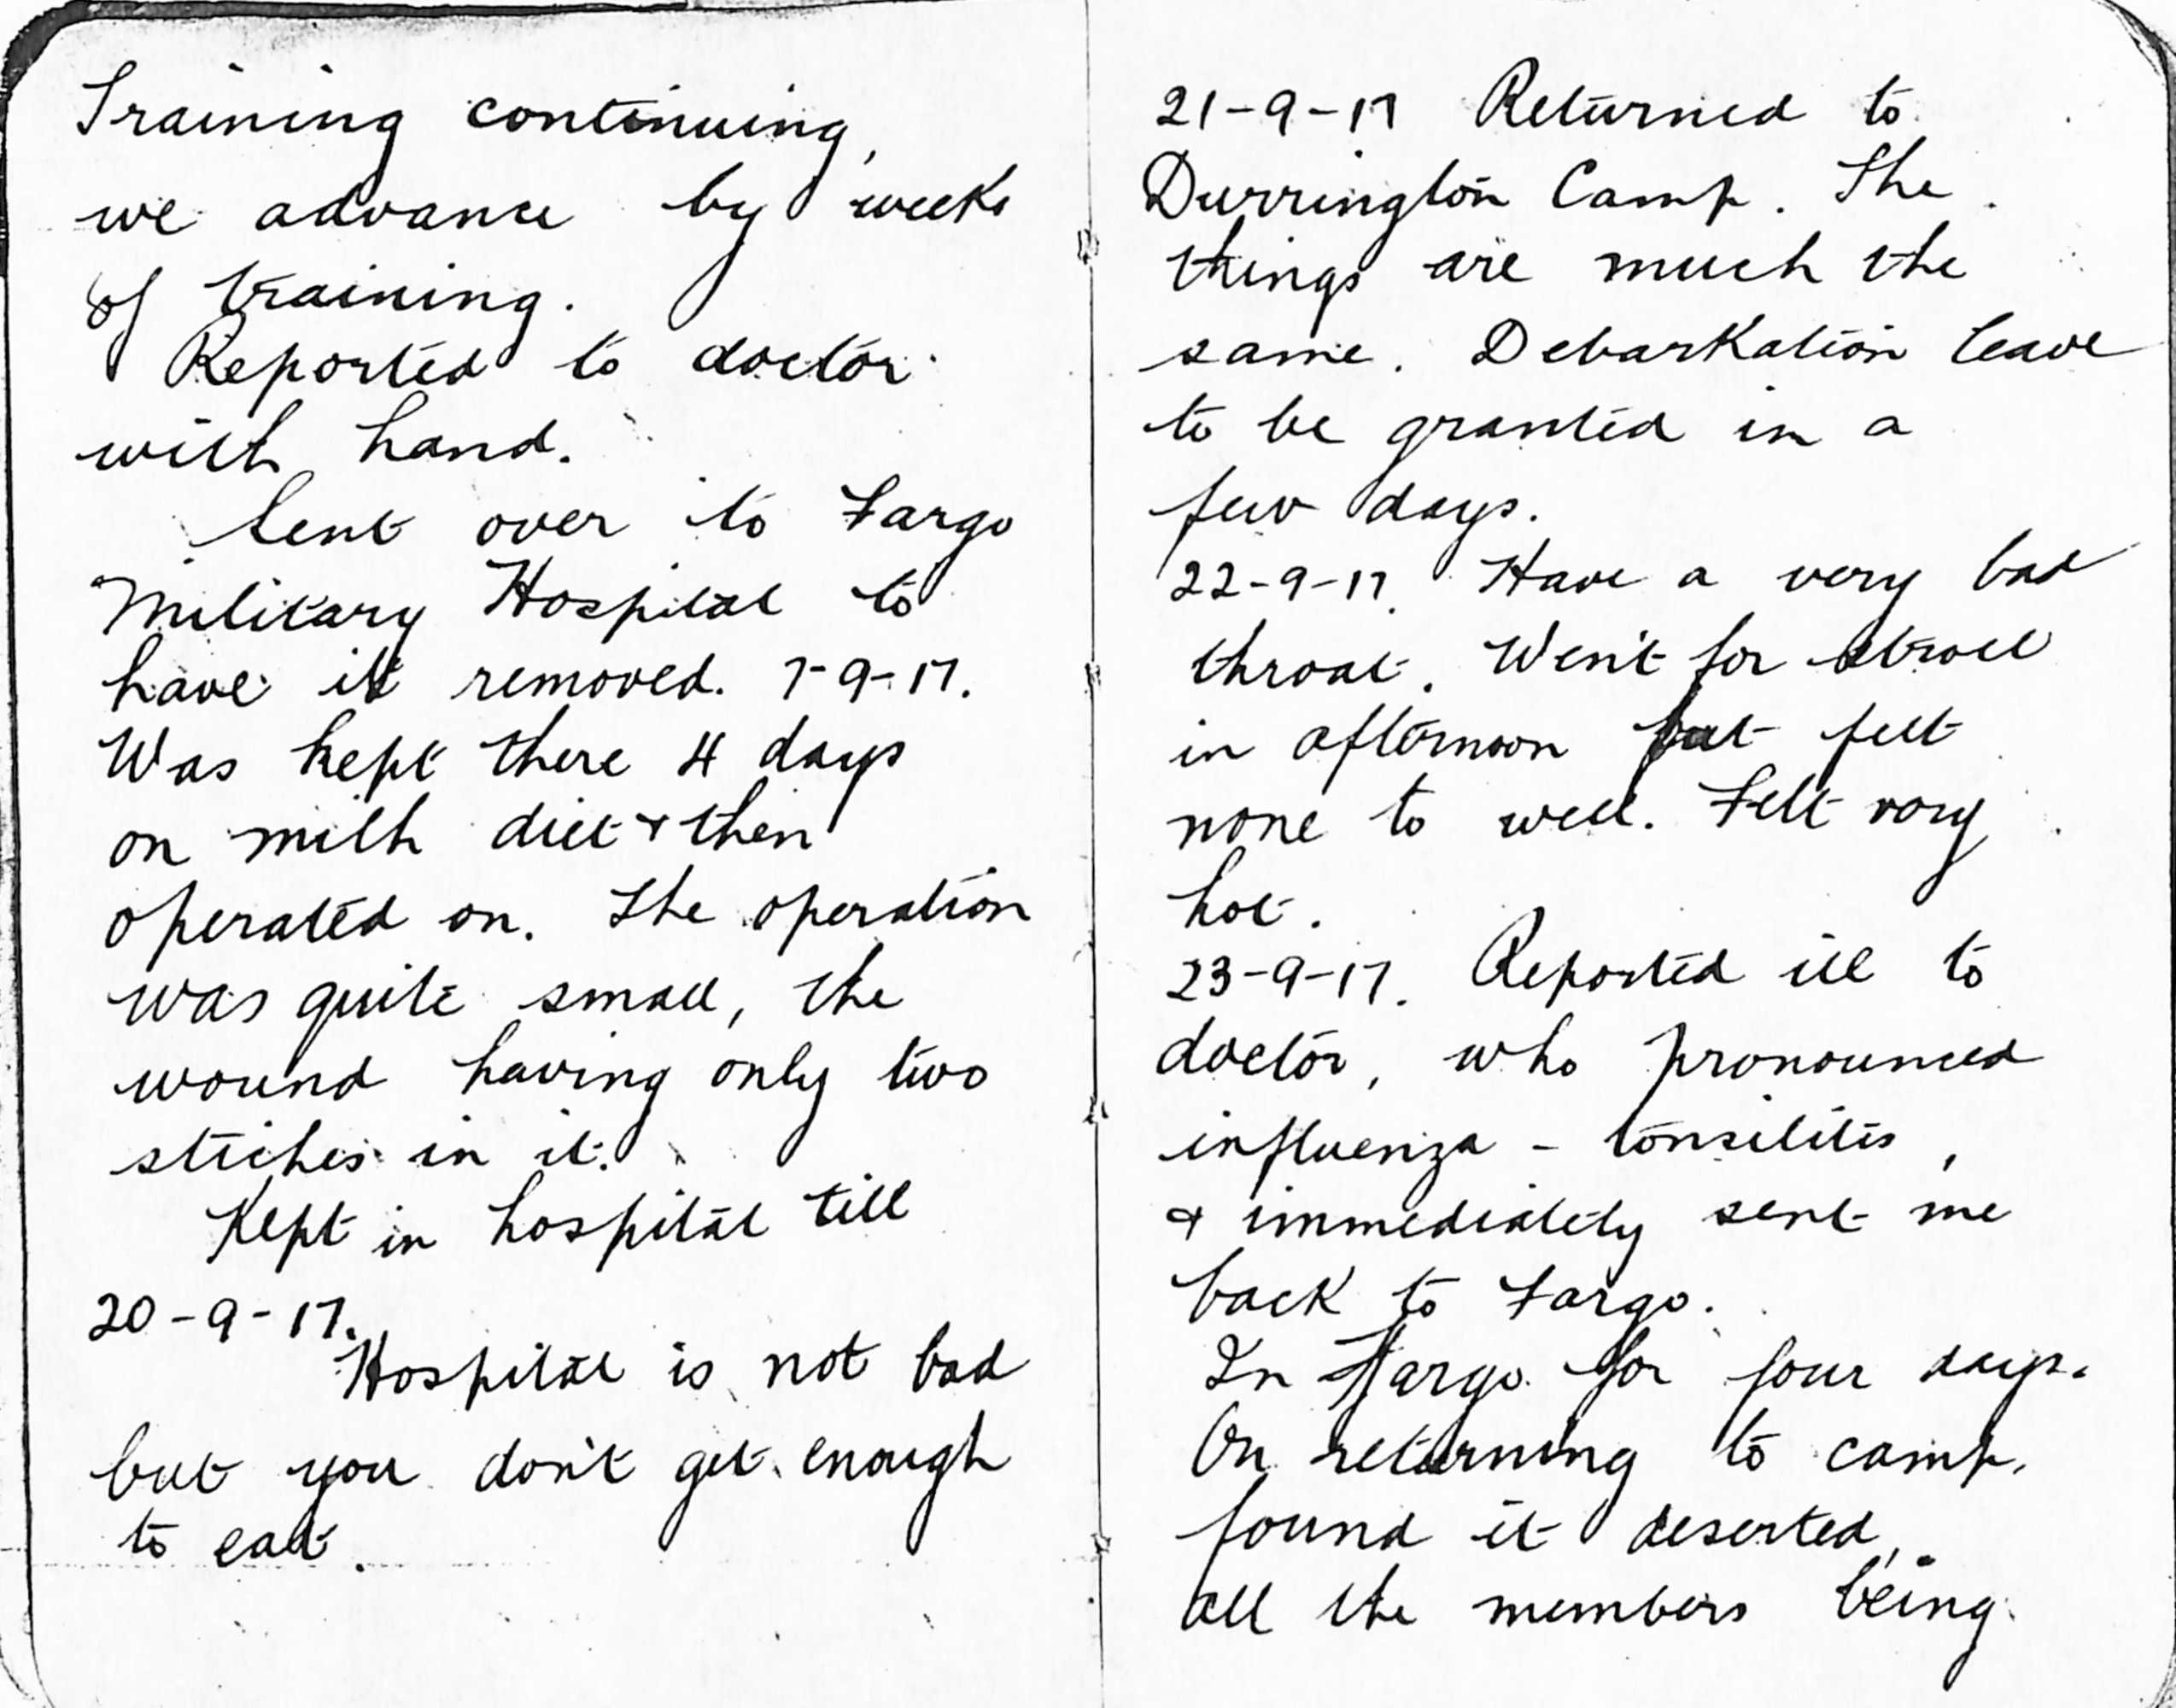 Training continuing,
we advance by weeks
of training.
Reported to doctor
with hand.
Sent over to Fargo
Military Hospital to
have it removed. 7-9-17.
Was kept there 4 days
on milk diet & then
operated on. The operation
was quite small, the
wound having only two
stiches in it.
Kept in hospital till
20-9-17.
Hospital is not bad
but you don't get enough
to eat.
21-9-17 Returned to
Durrington Camp. The
things are much the
same. Debarkation leave
to be granted in a
few days.
22-9-17. Have a very bad
throat. Went for stroll
in afternoon but felt
none to well. Felt very
hot.
23-9-17. Reported ill to
doctor, who pronounced
influenza - tonsilitis,
& immediately sent me
back to Fargo.
In Fargo for four days.
On returning to camp,
found it deserted,
all the members being